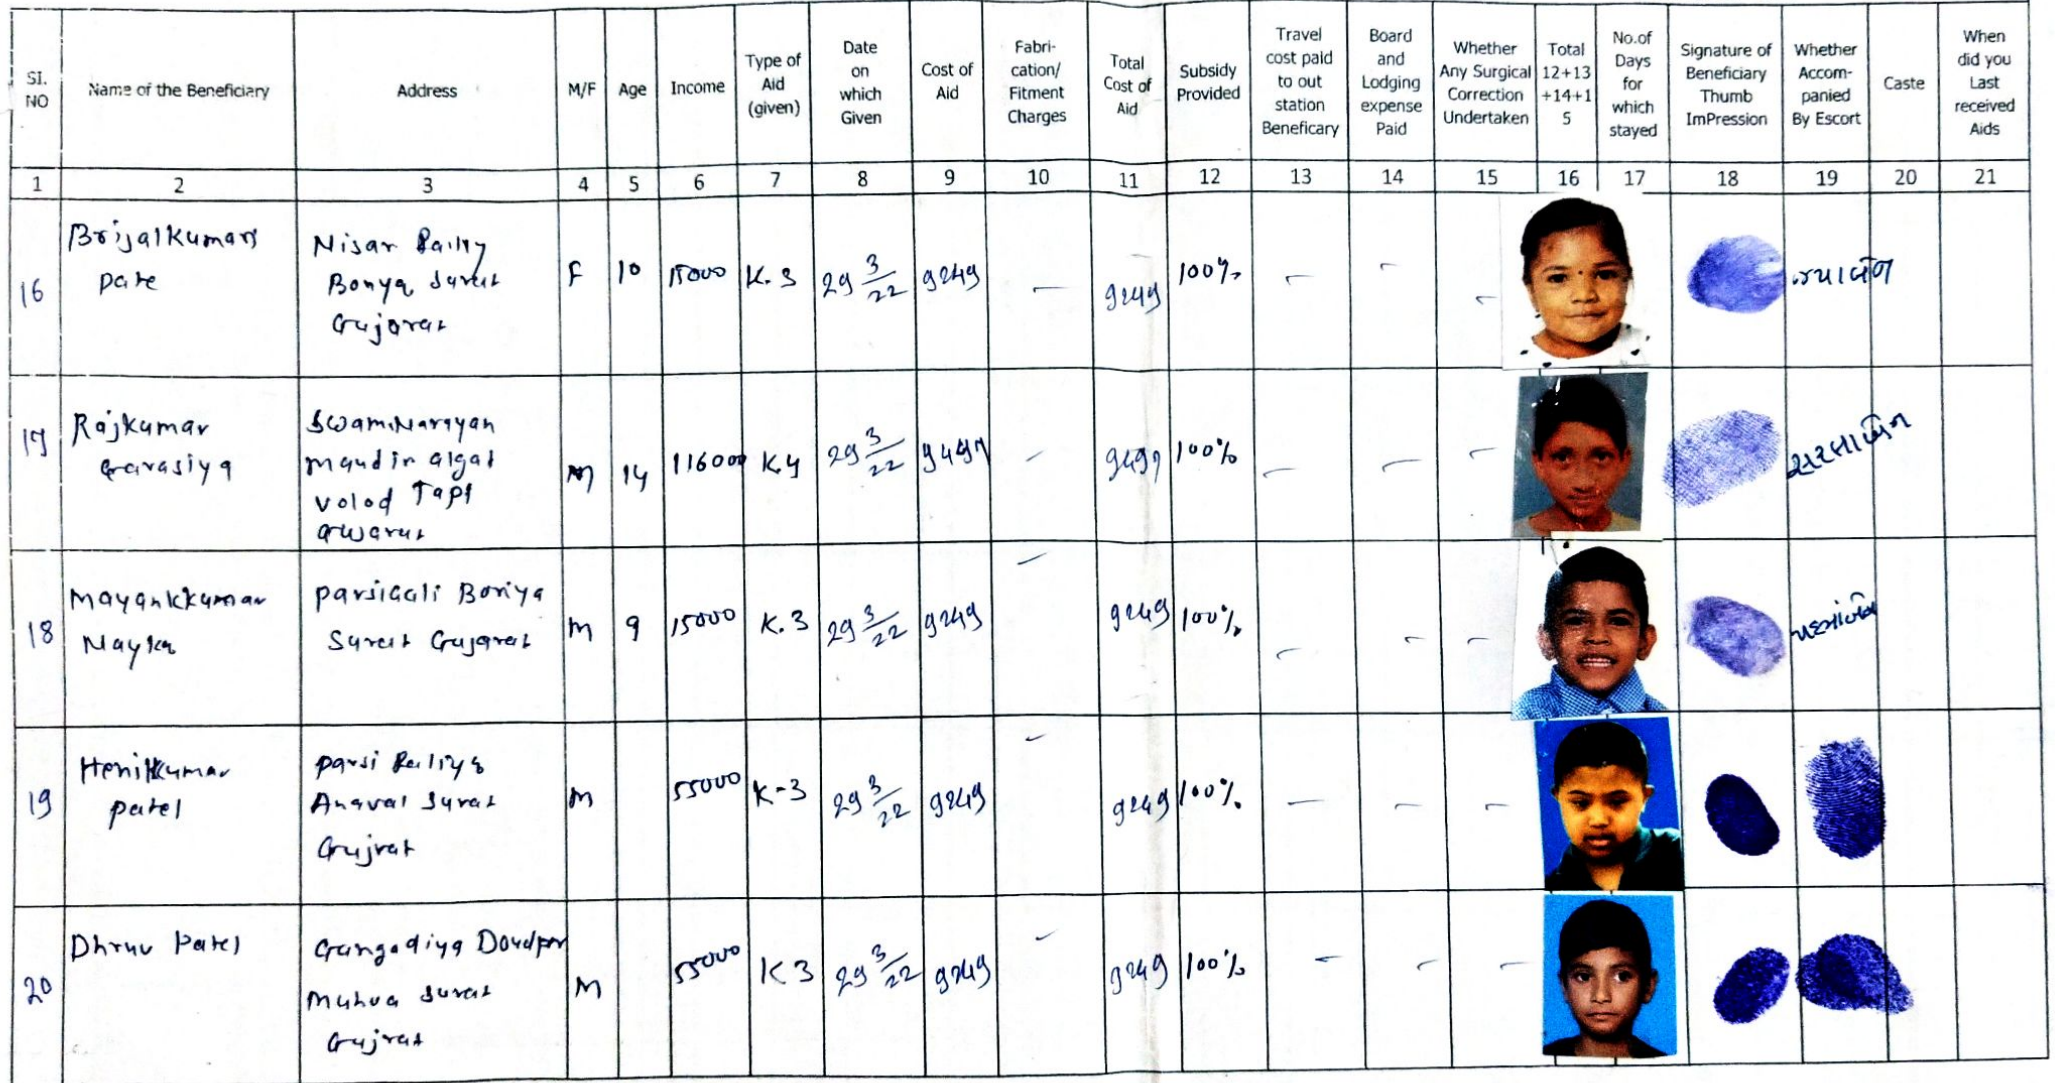 SI. NO
Name of the Beneficiary
Address
M/F
Age
Income
Type of Aid (given)
Date on which Given
Cost of Aid
Fabri-cation/ Fitment Charges
Total Cost of Aid
Subsidy Provided
Travel cost paid to out station Beneficary
Board and Lodging expense Paid
Whether Any Surgical Correction Undertaken
Total 12+13 +14+1 5
No.of Days for which stayed
Signature of Beneficiary Thumb ImPression
Whether Accom-panied By Escort
Caste
When did you Last received Aids
1 2 3 4 5 6 7 8 9 10 11 12 13 14 15 16 17 18 19 20 21
16
Brijalkumari
Pate
Nisar
Surat
Gujarat
F 10 15000 K.3 29 3/22 9249 — 9249 100% — — —
17
Rajkumar
Garasiya
Swaminarayan
mandir algat
Volod Tapi
M 14 116000 K4 29 3/22 9497 — 9497 100% — — —
સરલાબેન
18
Mayankkumar
Nayka
Parsigali Boriya
Surat Gujarat
M 9 15000 K.3 29 3/22 9249 — 9249 100% — — —
19
Henilkumar
Patel
Parsi
Anaval Surat
Gujrat
M 55000 K-3 29 3/22 9249 — 9249 100% — — —
20
Dhruv Patel
Gangadiya
Mahuva Surat
Gujrat
M 55000 K3 29 3/22 9249 — 9249 100% — — —